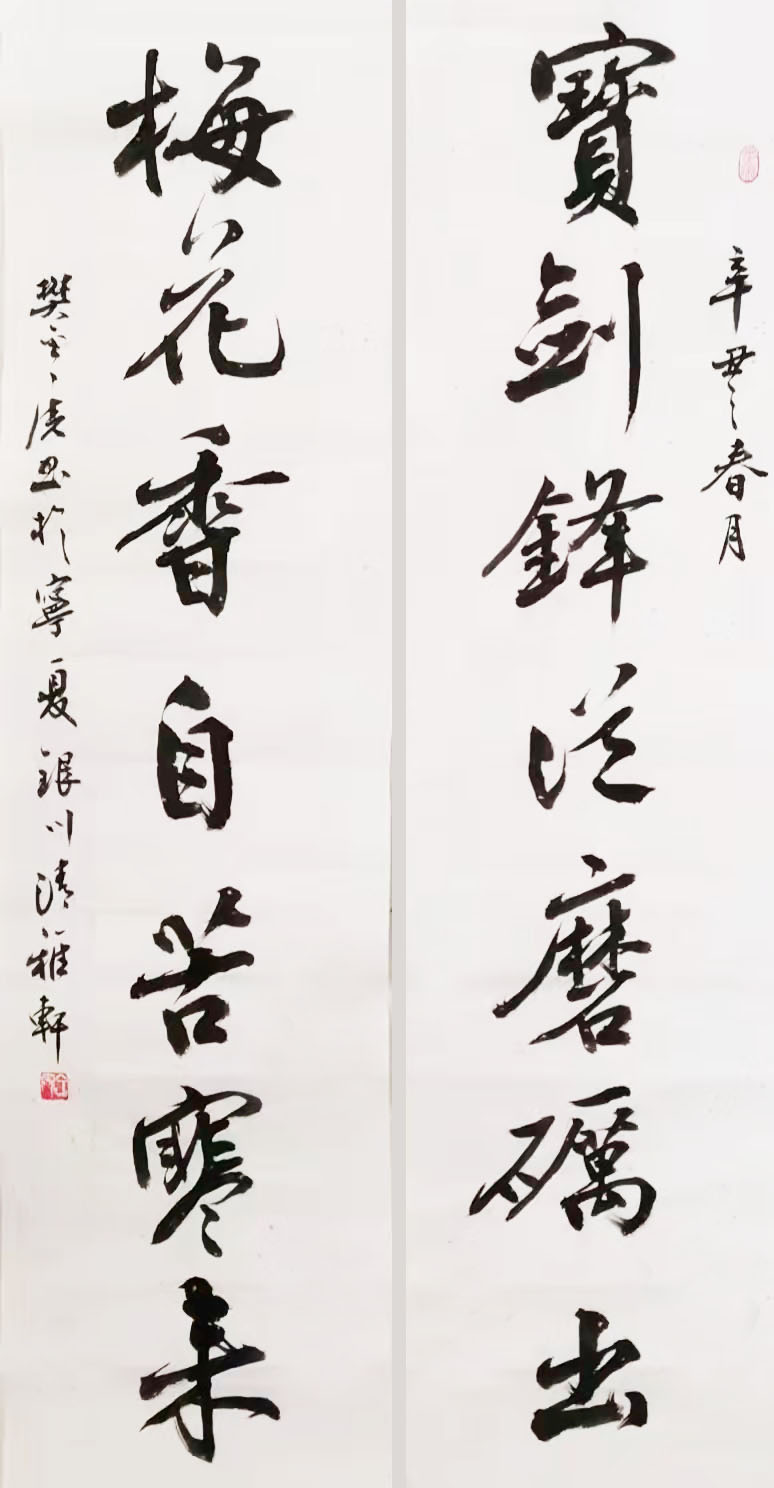 辛丑之春月
寶劍鋒從磨礪出
梅花香自苦寒来
樊书於寧夏銀川清雅軒